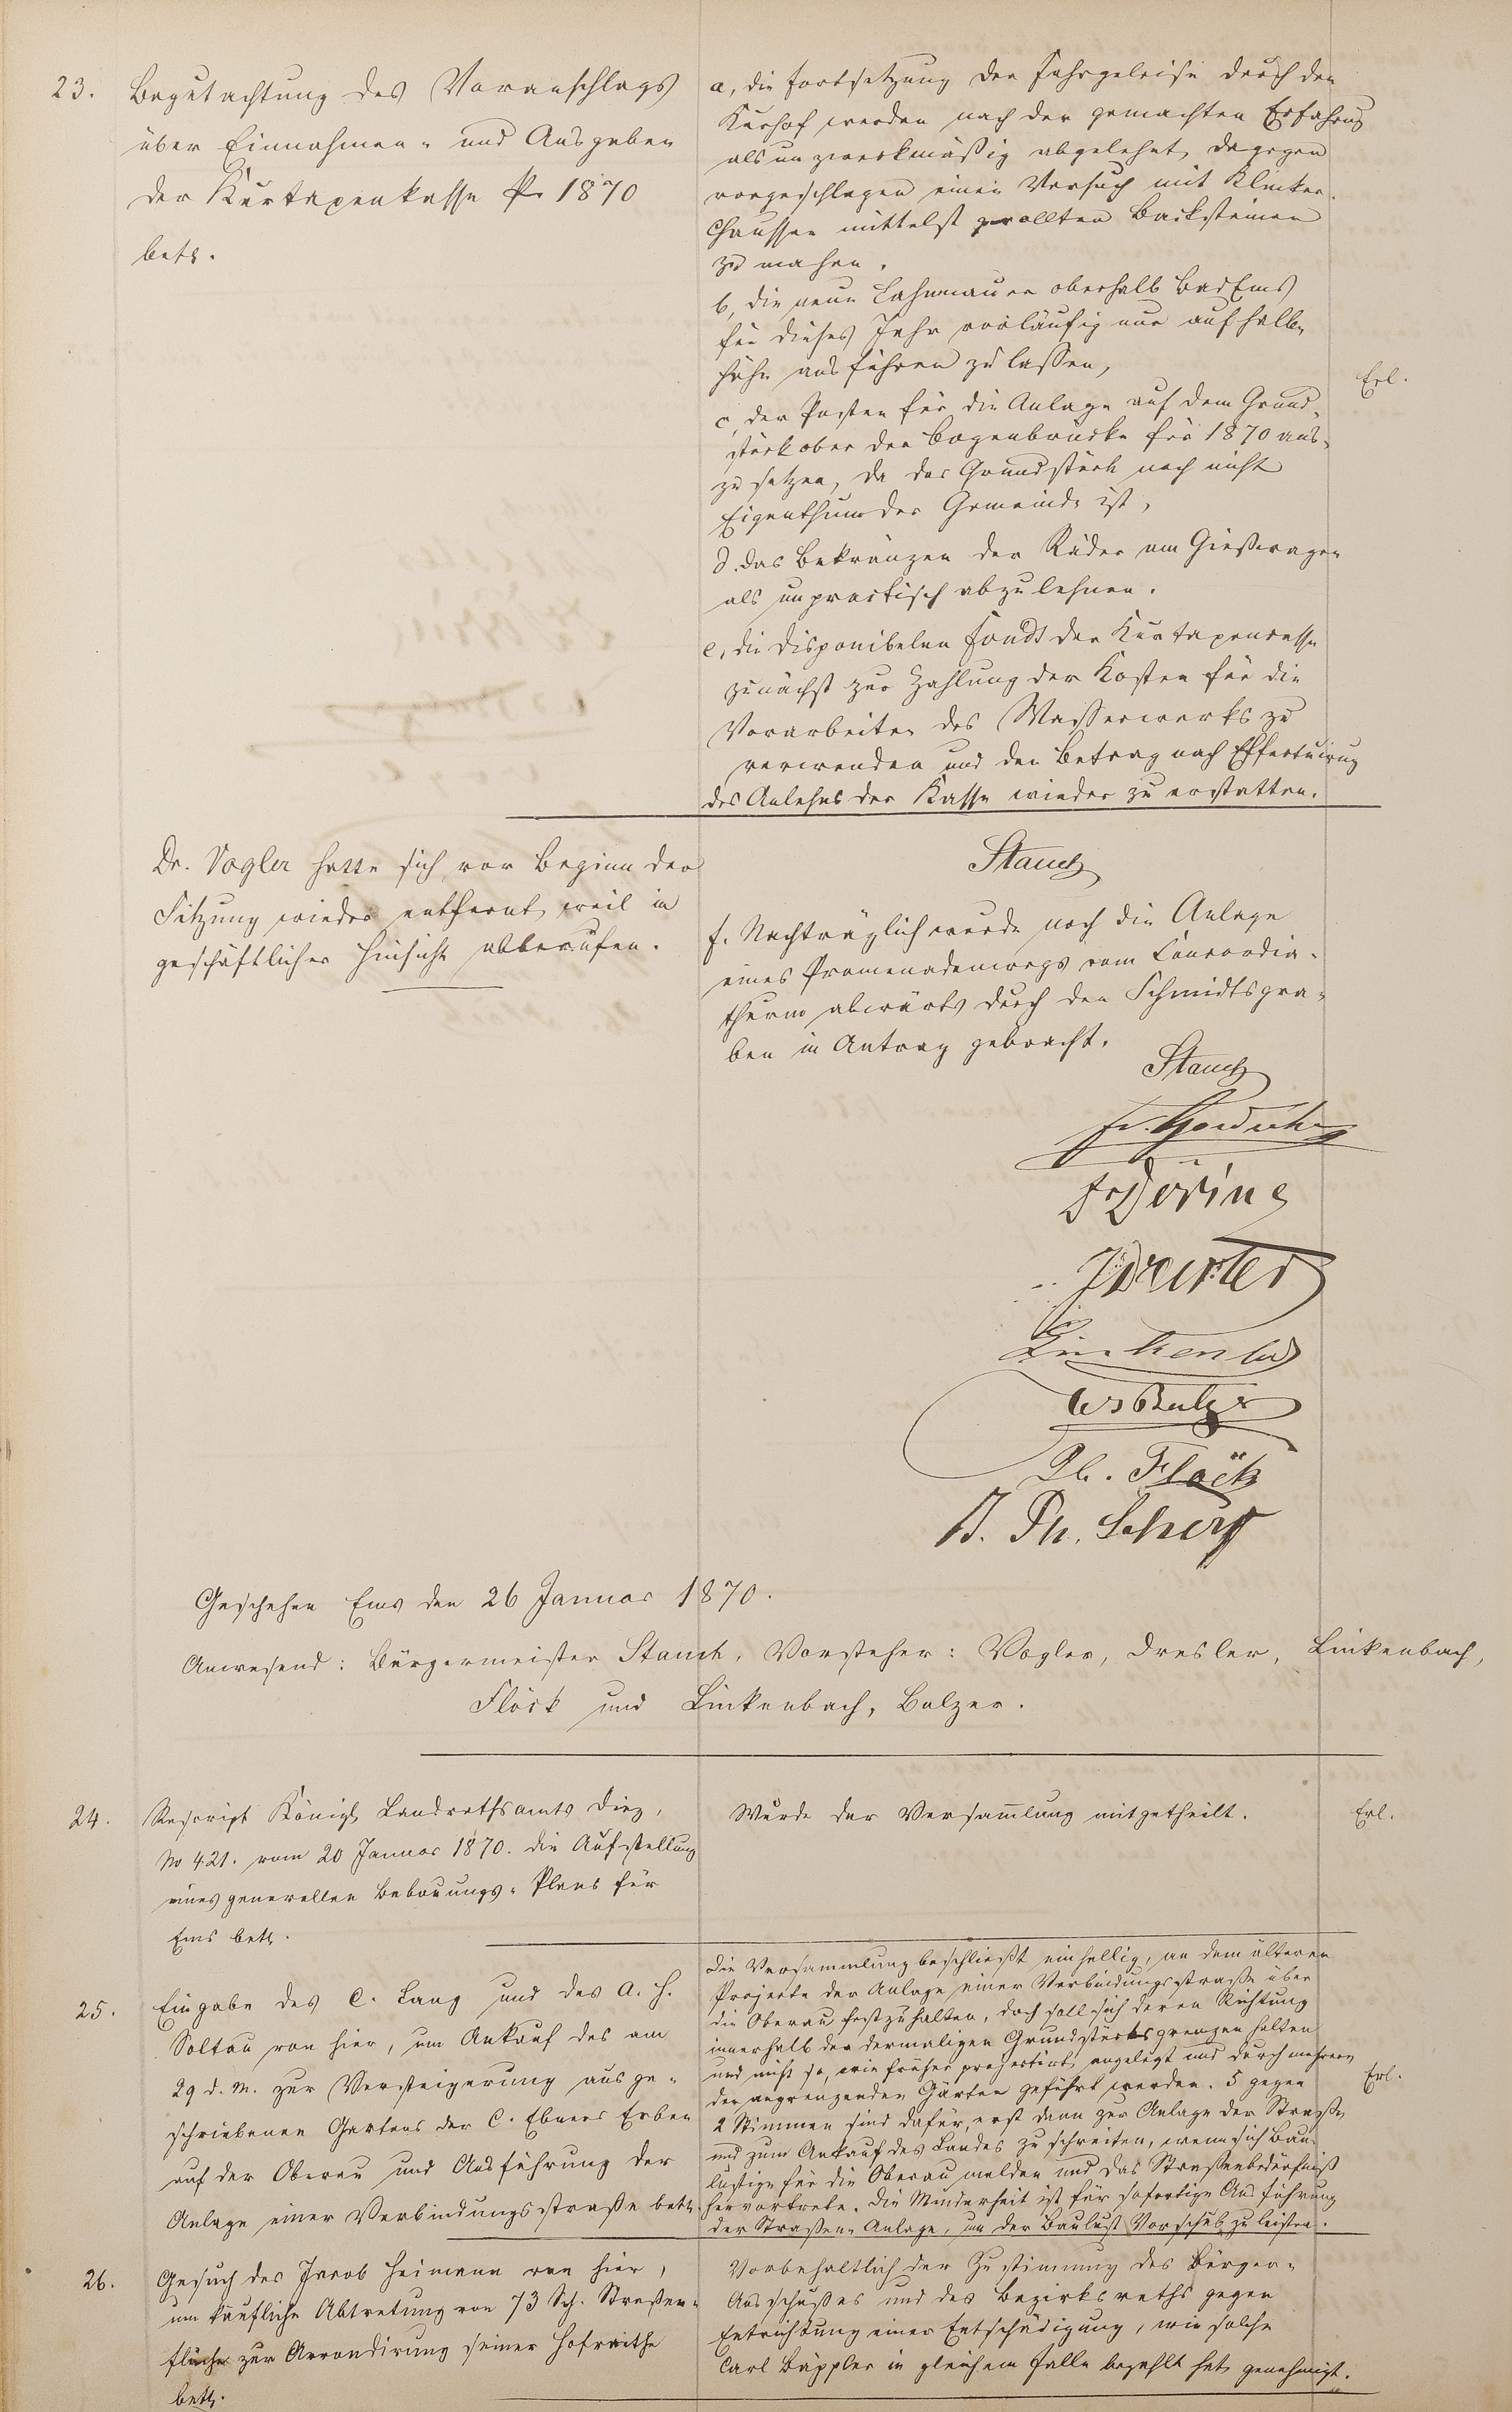 23.
Begutachtung des Voranschlags
über Einnahmen- und Ausgaben
der Kurtaxenkasse pr 1870
betr.
a, die Fortsetzung der Fahrgeleise durch den
Kurhof werden nach der gemachten Erfahrung
als unzweckmäßig abgelehnt, dagegen
vorgeschlagen einen Versuch mit Klinker-
Chaussee mittelst gerollten Backsteinen
zu machen.
b, die neue Lahnmauer oberhalb Bad Ems
für dieses Jahr vorläufig nur auf halbe
Höhe ausführen zu lassen,
c, der Posten für die Anlage auf dem Grund-
stück ober der Bogenbrücke für 1870 aus-
zusetzen, da das Grundstück noch nicht
Eigenthum der Gemeinde ist,
d. das Bekränzen der Räder am Gießwagen
als unpractisch abzulehnen.
e, die disponibelen Fonds der Kurtaxencasse
zunächst zur Zahlung der Kosten für die
Vorarbeiten des Wasserwerks zu
verwenden und den Betrag nach Effectuirung
des Anlehns der Kasse wieder zu erstatten.
Erl.
Dr. Vogler hatte sich vor Beginn der
Sitzung wieder entfernt, weil in
geschäftlicher Hinsicht abberufen.
Stauch
f. Nachträglich wurde noch die Anlage
eines Promenadenwegs vom Concordia-
thurm abwärts durch den Schmidtsgra-
ben in Antrag gebracht.
Stauch
Fr Döring
J Dresler
Linkenbach
Balzer
Ph. Flöck
J. Ph. Scherf
Geschehen Ems den 26 Januar 1870.
Anwesend: Bürgermeister Stauch, Vorsteher: Vogler, Dresler, Linkenbach,
Flöck und Linkenbach, Balzer.
24.
Rescript Königl. Landrathsamts Diez,
No 421. vom 20 Januar 1870. die Aufstellung
eines generellen Bebauungs-Plans für
Ems betr.
Wurde der Versammlung mitgetheilt.
Erl.
25.
Eingabe des C. Lang und des A. H.
Soltau von hier, um Ankauf des am
29 d. M. zur Versteigerung ausge-
schriebenen Gartens der C. Ebners Erben
auf der Oberau und Ausführung der
Anlage einer Verbindungsstraße betr.
Die Versammlung beschließt einhellig, an dem älteren
Projecte der Anlage einer Verbindungsstraße über
die Oberau festzuhalten, doch soll sich deren Richtung
innerhalb der dermaligen Grundstücksgrenzen halten
und nicht so, wie früher projectirt, angelegt und durch mehrere
der angrenzenden Gärten geführt werden. 5 gegen
2 Stimmen sind dafür, erst dann zur Anlage der Straße
und zum Ankauf des Landes zu schreiten, wenn sich Bau-
lustige für die Oberau melden und das Straßenbedürfniß
hervortrete. Die Minderheit ist für sofortige Ausführung
der Straßen-Anlage, um der Baulust Vorschub zu leisten.
Erl.
26.
Gesuch des Jacob Heimann von hier,
um käufliche Abtretung von 73 Sch. Straßen-
fläche zur Arrondirung seiner Hofraithe
betr.
Vorbehaltlich der Zustimmung des Bürger-
Ausschußes und des Bezirksraths gegen
Entrichtung einer Entschädigung, wie solche
Carl Bäppler in gleichem Falle bezahlt hat, genehmigt.